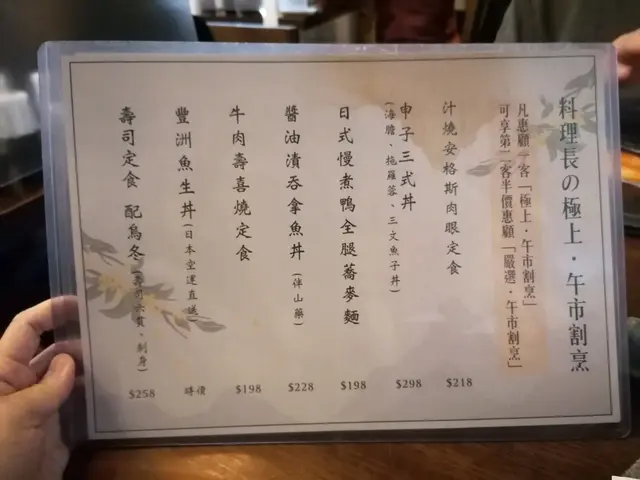 料理長の極上・午市割烹
凡惠顧一客「極上・午市割烹」
可享第二客半價惠顧「嚴選・午市割烹」
汁燒安格斯肉眼定食
$218
申子三式丼
(海膽、拖羅蓉、三文魚子丼)
$298
日式慢煮鴨全腿蕎麥麵
$198
醬油漬吞拿魚丼(伴山藥)
$228
牛肉壽喜燒定食
$198
豐洲魚生丼(日本空運直送)
時價
壽司定食 配烏冬(壽司六貫、刺身)
$258